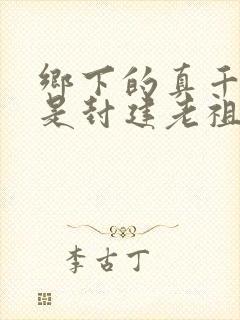 鄉下的真千
是封建老祖
李古丁